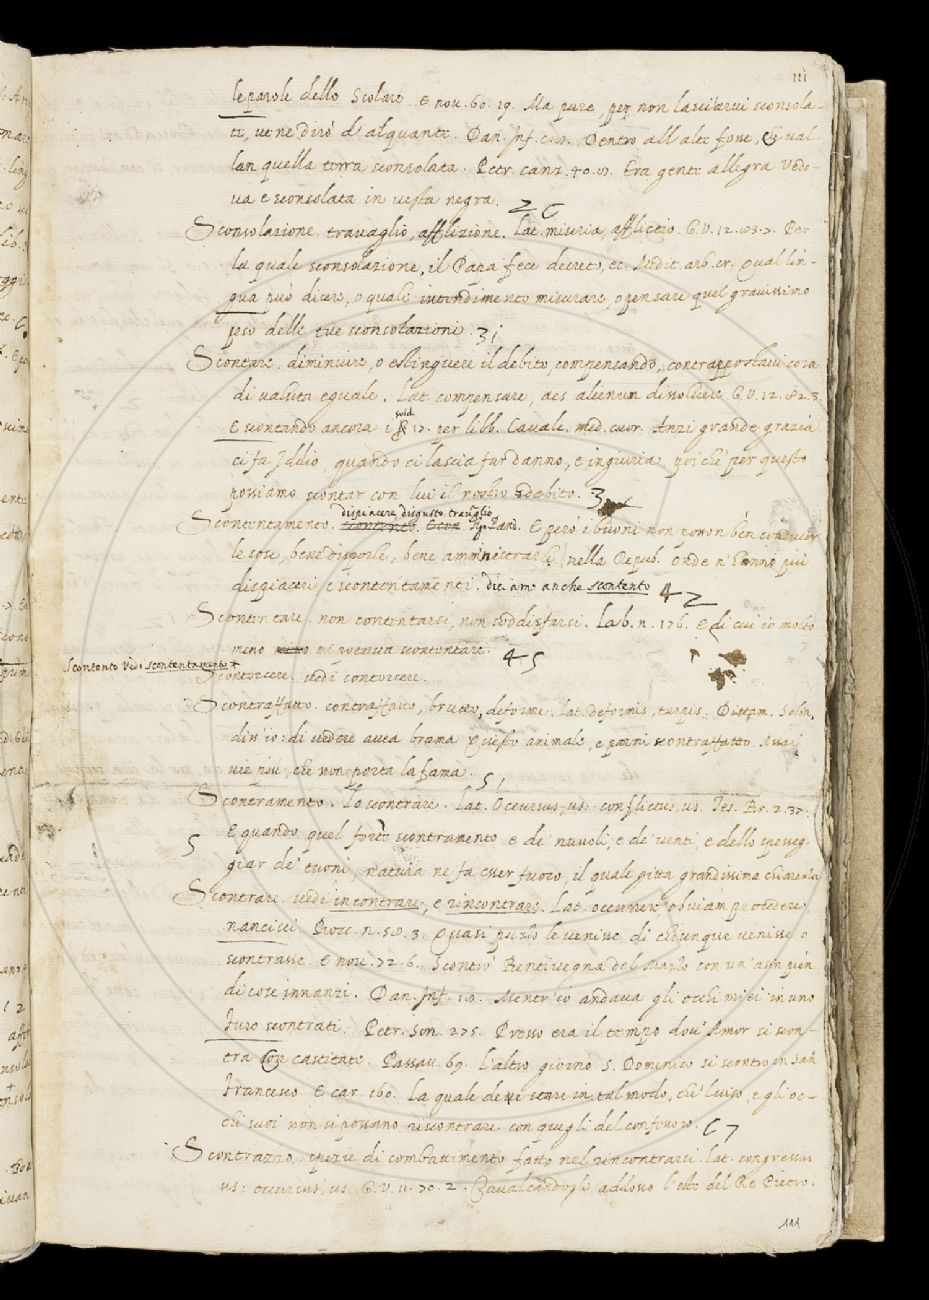 111
le parole dello Scolare. E nov. 60. 19. Ma pure, per non lasciarvi sconsola-
ti, ve ne dirò d'alquante. Dan. Inf. c. 8. Dentro all'alte fosse, che val-
lan quella terra sconsolata. Petr. canz. 40. 8. Era gente allegra Vedo-
va e sconsolata in vesta negra. 26
Sconsolazione. travaglio, afflizione. Lat. miseria, afflictio. G.V. 12. 108. 7. Per
la quale sconsolazione, il Papa fece decreto, ec. Medit. arb. cr. Qual lin-
gua può dicere, o quale intendimento misurare, o pensare quel gravissimo
peso delle tue sconsolazioni. 31
Scontare. diminuire, o estinguere il debito, compensando, contrappostavi cosa
di valuta eguale. Lat. compensare, aes alienum dissolvere. G.V. 12. 82. 3.
E scontando ancora i sold. 17. per libb. Cavalc. med. cuor. Anzi grande grazia
ci fa Iddio, quando ci lascia far danno, e ingiuria, poi chè per questo
possiamo scontar con lui il nostro debito. 3
dispiacere, disgusto, travaglio
Scontentamento. Pand. E però i buoni non posson ben conducer
le cose, bene disporle, bene amministrarle nella Repub. Onde n'hanno più
dispiaceri, e scontentamenti. diciamo anche scontento 42
Scontentare. non contentarsi, non soddisfarsi. Lab. n. 176. E di cui io molto
meno mi poteva scontentare. 45
Scontento vedi scontentamento +
Scontorcere. vedi contorcere.
Scontraffatto. contraffatto, brutto, deforme. Lat. deformis, turpis. Dittam. Solin,
diss'io: di vedere avea brama Questo animale, e parmi scontraffatto Assai
vie più, che non porta la fama. 51
Scontramento. Lo scontrare. Lat. Occursus, us: conflictus, us. Tes. Br. 2. 37.
5 E quando quel forte scontramento e de' nuvoli, e de' venti, e dello spesseg-
giar de' tuoni, natura ne fa esser fuoco, il quale gitta grandissima chiarezza
Scontrare. vedi incontrare, e rincontrare. Lat. occurrere, obviam procedere,
nancisci. Bocc. n. 50. 3. Quasi puzzo le venisse di chiunque venisse o
scontrasse. E nov. 72. 6. Scontrò Bentivegna del Mazzo con un'asin pien
di cose innanzi. Dan. Inf. 10. Mentr'io andava gli occhi miei in uno
Furo scontrati. Petr. Son. 275. Presso era il tempo dov'Amor si scon-
tra Con castitate. Passav. 69. l'altro giorno S. Domenico si scontro in San
Francesco. E car. 160. La quale deve stare in tal modo, che'l viso, e gli oc-
chi suoi non si possano riscontrare con quegli del confessoro. 67
Scontrazzo. spezie di combattimento fatto nel rincontrarsi. Lat. congressus
us: occursus, us. G.V. 11. 70. 2. Cavalcandogli addosso l'oste del Re Pietro.
111